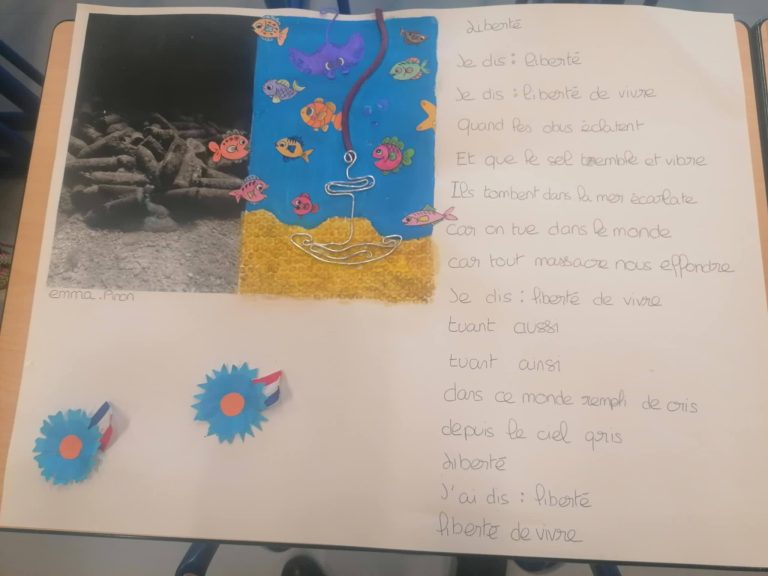 liberté
Je dis : liberté
Je dis : liberté de vivre
Quand les obus éclatent
Et que le sel tremble et vibre
Ils tombent dans la mer écarlate
car on tue dans le monde
car tout massacre nous effondre
Je dis : liberté de vivre
tuant aussi
tuant ainsi
dans ce monde rempli de cris
depuis le ciel gris
liberté
J'ai dis : liberté
liberté de vivre
emma. Pinon